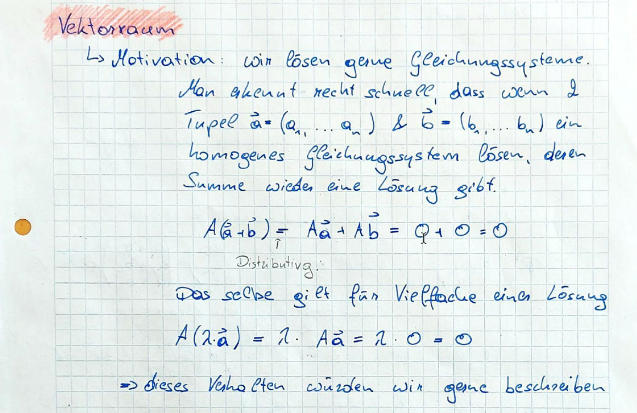 Vektorraum
↳ Motivation: wir lösen gerne Gleichungssysteme.
Man erkennt recht schnell, dass wenn 2
Tupel a⃗ = (a₁, ... aₙ) & b⃗ = (b₁, ... bₙ) ein
homogenes Gleichungssystem lösen, deren
Summe wieder eine Lösung gibt.
A(a⃗+b⃗) = Aa⃗ + Ab⃗ = 0 + 0 = 0
Distributivg.
Das selbe gilt für Vielfache einer Lösung
A(λ·a⃗) = λ · Aa⃗ = λ · 0 = 0
⇒ dieses Verhalten würden wir gerne beschreiben